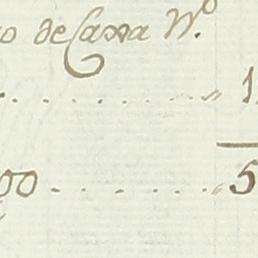 o de Caxa N.º
1
00 5